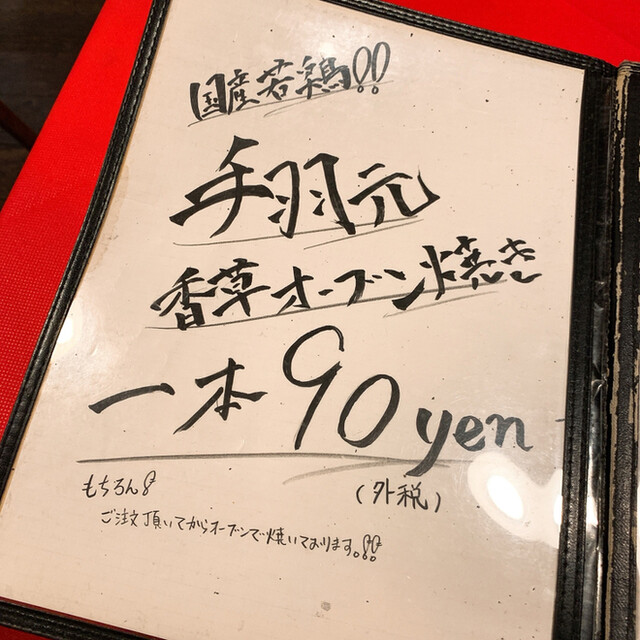 国産若鶏!!
手羽元
香草オーブン焼き
一本 90yen
(外税)
もちろん!
ご注文頂いてからオーブンで焼いております。!!